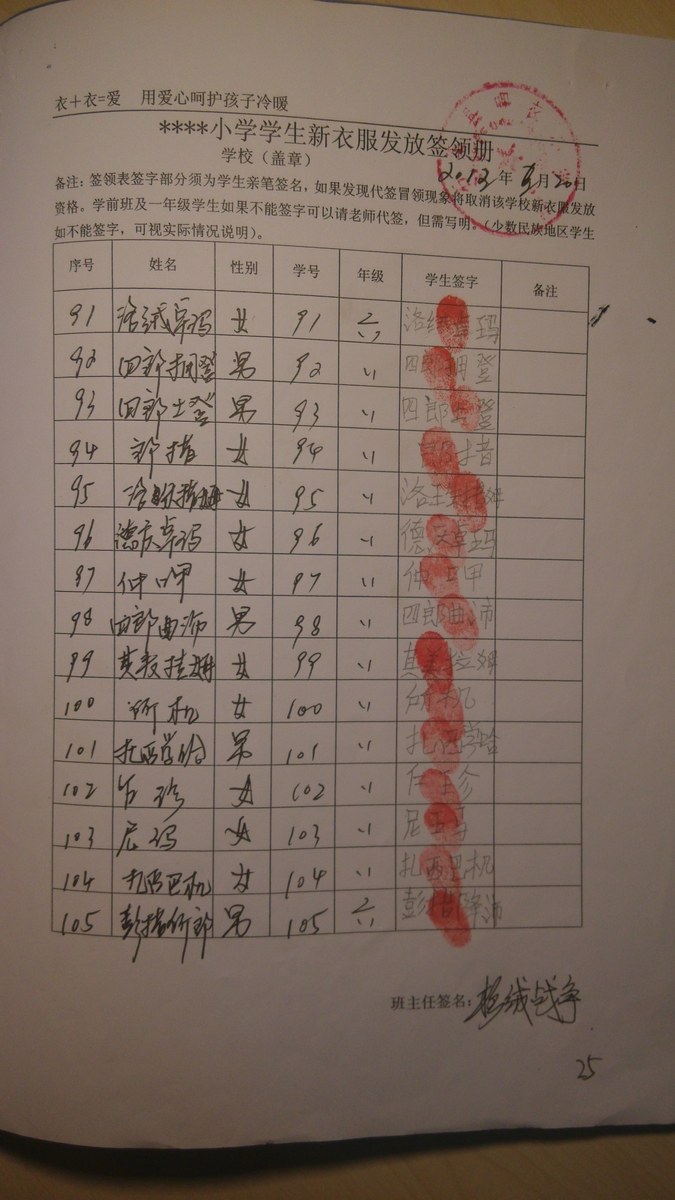 衣＋衣=爱 用爱心呵护孩子冷暖
****小学学生新衣服发放签领册
学校（盖章） 2012 年 5 月 20 日
备注：签领表签字部分须为学生亲笔签名，如果发现代签冒领现象将取消该学校新衣服发放
资格。学前班及一年级学生如果不能签字可以请老师代签，但需写明。（少数民族地区学生
如不能签字，可视实际情况说明）。
序号 姓名 性别 学号 年级 学生签字 备注
91 洛绒卓玛 女 91 六 洛绒卓玛
92 四郎拥登 男 92 〃 四郎拥登
93 四郎土登 男 93 〃 四郎土登
94 郎措 女 94 〃 郎措
95 女 95 〃
96 德庆卓玛 女 96 〃 德庆卓玛
97 仲呷 女 97 〃 仲呷
98 四郎曲沛 男 98 〃 四郎曲沛
99 女 99 〃
100 女 100 〃
101 扎西学哈 男 101 〃 扎西学哈
102 女 102 〃
103 尼玛 女 103 〃 尼玛
104 扎西巴机 女 104 〃 扎西巴机
105 男 105 六
班主任签名：
25